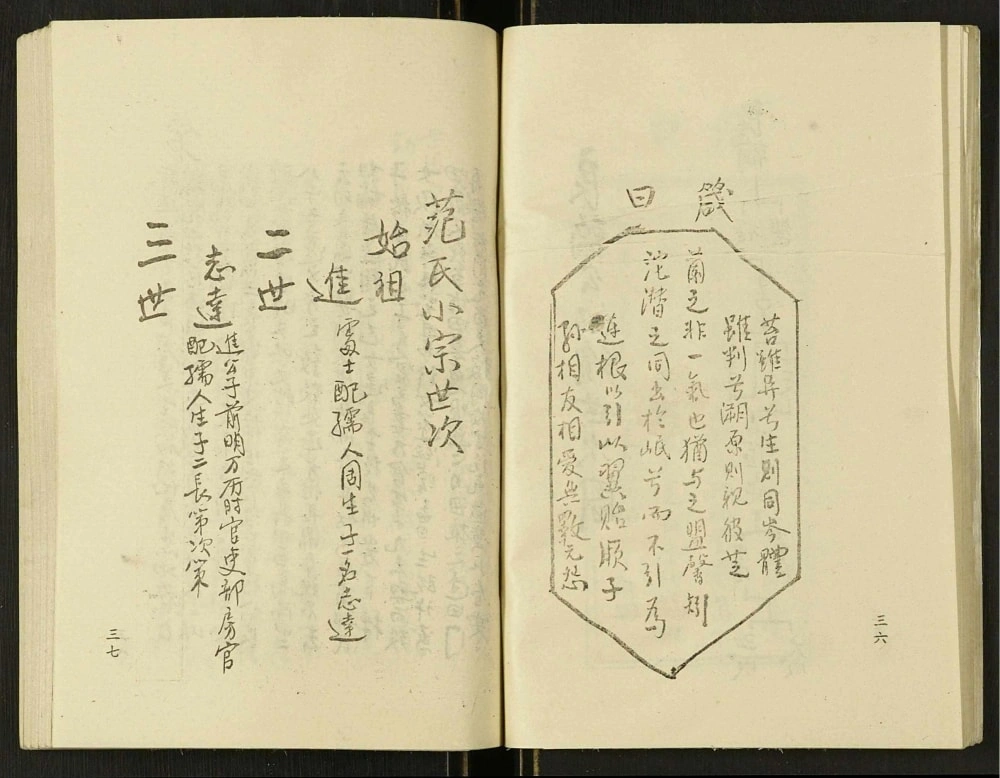 箴曰
苔雖异兮生則同岑體
雖判兮溯原則視彼芝
蘭之非一氣也猶与之盟馨矧
沱潛之同出於岷兮而不引為
連根以引以翼貽厥子
孫相友相愛無斁无怨
三六
范氏小宗世次
始祖
進
處士配孺人周生子一名志達
二世
志達
進公子前明万历时官吏部房官
配孺人生子二長第次策
三世
三七